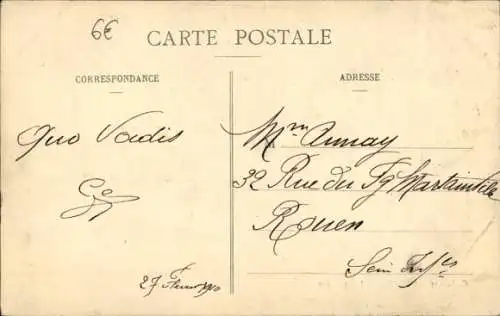 6€
CARTE POSTALE
CORRESPONDANCE
Quo Vadis
27
ADRESSE
Mme Aunay
32 Rue du Fg Martainville
Rouen
Sein Infres